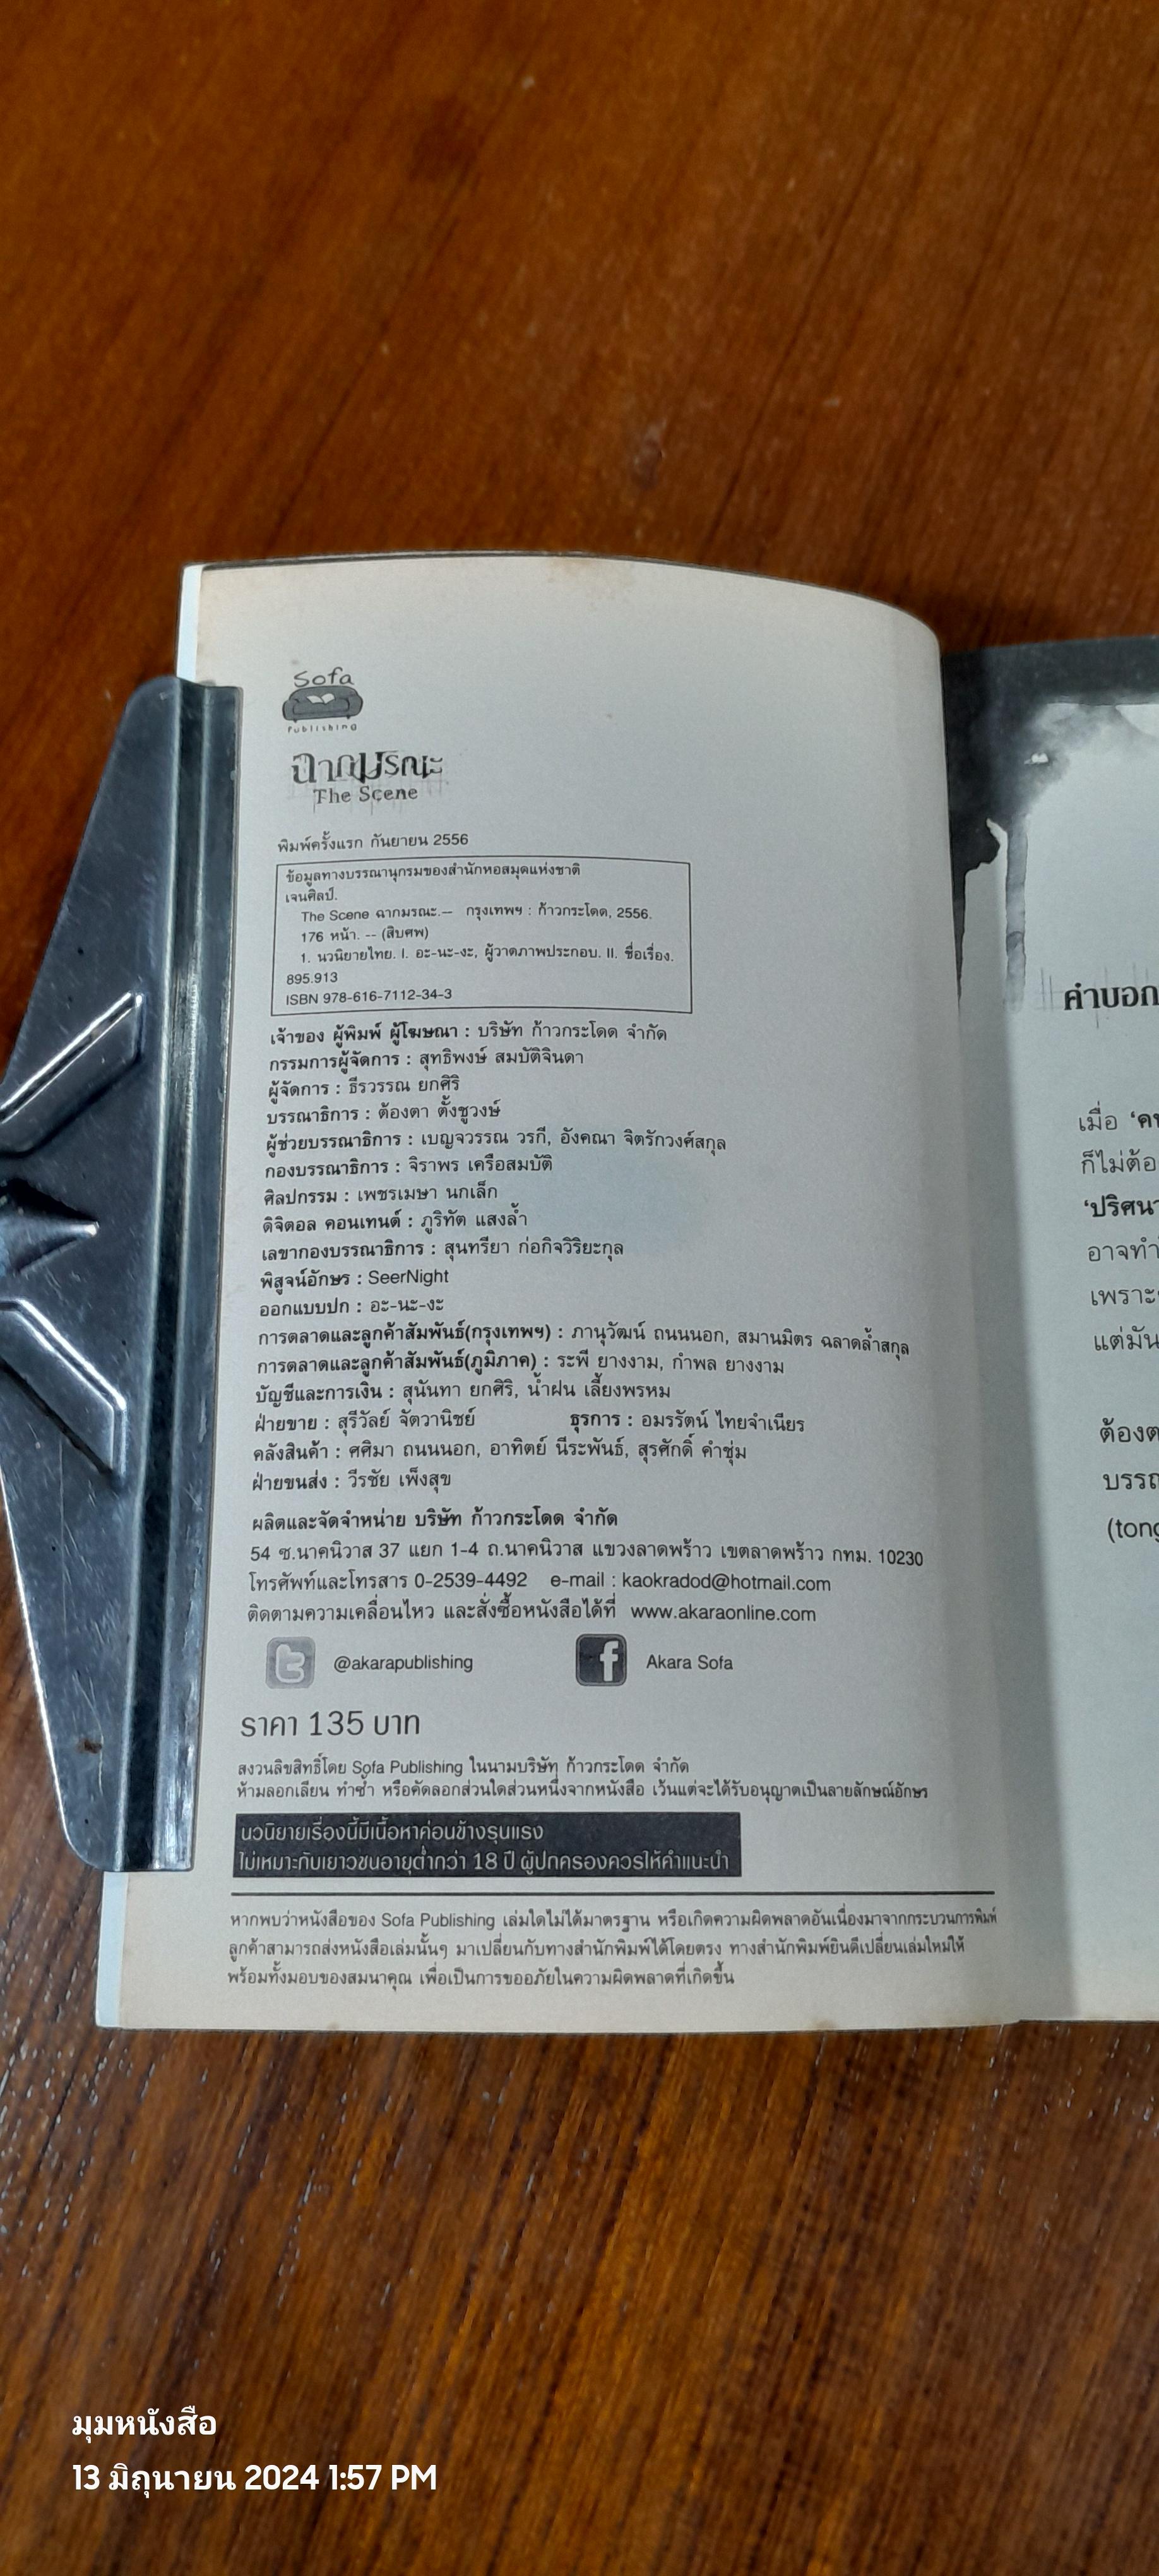 Sofa
Publishing
ฉากมรณะ
The Scene
พิมพ์ครั้งแรก กันยายน 2556
ข้อมูลทางบรรณานุกรมของสำนักหอสมุดแห่งชาติ
เจนศิลป์.
The Scene ฉากมรณะ.-- กรุงเทพฯ : ก้าวกระโดด, 2556.
176 หน้า. -- (สิบศพ)
1. นวนิยายไทย. I. อะ-นะ-งะ, ผู้วาดภาพประกอบ. II. ชื่อเรื่อง.
895.913
ISBN 978-616-7112-34-3
เจ้าของ ผู้พิมพ์ ผู้โฆษณา : บริษัท ก้าวกระโดด จำกัด
กรรมการผู้จัดการ : สุทธิพงษ์ สมบัติจินดา
ผู้จัดการ : ธีรวรรณ ยกศิริ
บรรณาธิการ : ต้องตา ตั้งชูวงษ์
ผู้ช่วยบรรณาธิการ : เบญจวรรณ วรกี, อังคณา จิตรักวงศ์สกุล
กองบรรณาธิการ : จิราพร เครือสมบัติ
ศิลปกรรม : เพชรเมษา นกเล็ก
ดิจิตอล คอนเทนต์ : ภูริทัต แสงล้ำ
เลขากองบรรณาธิการ : สุนทรียา ก่อกิจวิริยะกุล
พิสูจน์อักษร : SeerNight
ออกแบบปก : อะ-นะ-งะ
การตลาดและลูกค้าสัมพันธ์(กรุงเทพฯ) : ภานุวัฒน์ ถนนนอก, สมานมิตร ฉลาดล้ำสกุล
การตลาดและลูกค้าสัมพันธ์(ภูมิภาค) : ระพี ยางงาม, กำพล ยางงาม
บัญชีและการเงิน : สุนันทา ยกศิริ, น้ำฝน เลี้ยงพรหม
ฝ่ายขาย : สุรีวัลย์ จัตวานิชย์ ธุรการ : อมรรัตน์ ไทยจำเนียร
คลังสินค้า : ศศิมา ถนนนอก, อาทิตย์ นีระพันธ์, สุรศักดิ์ คำชุ่ม
ฝ่ายขนส่ง : วีรชัย เพ็งสุข
ผลิตและจัดจำหน่าย บริษัท ก้าวกระโดด จำกัด
54 ซ.นาคนิวาส 37 แยก 1-4 ถ.นาคนิวาส แขวงลาดพร้าว เขตลาดพร้าว กทม. 10230
โทรศัพท์และโทรสาร 0-2539-4492 e-mail : kaokradod@hotmail.com
ติดตามความเคลื่อนไหว และสั่งซื้อหนังสือได้ที่ www.akaraonline.com
@akarapublishing Akara Sofa
ราคา 135 บาท
สงวนลิขสิทธิ์โดย Sofa Publishing ในนามบริษัท ก้าวกระโดด จำกัด
ห้ามลอกเลียน ทำซ้ำ หรือคัดลอกส่วนใดส่วนหนึ่งจากหนังสือ เว้นแต่จะได้รับอนุญาตเป็นลายลักษณ์อักษร
นวนิยายเรื่องนี้มีเนื้อหาค่อนข้างรุนแรง
ไม่เหมาะกับเยาวชนอายุต่ำกว่า 18 ปี ผู้ปกครองควรให้คำแนะนำ
หากพบว่าหนังสือของ Sofa Publishing เล่มใดไม่ได้มาตรฐาน หรือเกิดความผิดพลาดอันเนื่องมาจากกระบวนการพิมพ์
ลูกค้าสามารถส่งหนังสือเล่มนั้นๆ มาเปลี่ยนกับทางสำนักพิมพ์ได้โดยตรง ทางสำนักพิมพ์ยินดีเปลี่ยนเล่มใหม่ให้
พร้อมทั้งมอบของสมนาคุณ เพื่อเป็นการขออภัยในความผิดพลาดที่เกิดขึ้น
คำบอก
เมื่อ
ก็ไม่ต้อ
'ปริศนา
อาจทำ
เพราะ
แต่มัน
ต้องต
บรรณ
(tong
มุมหนังสือ
13 มิถุนายน 2024 1:57 PM